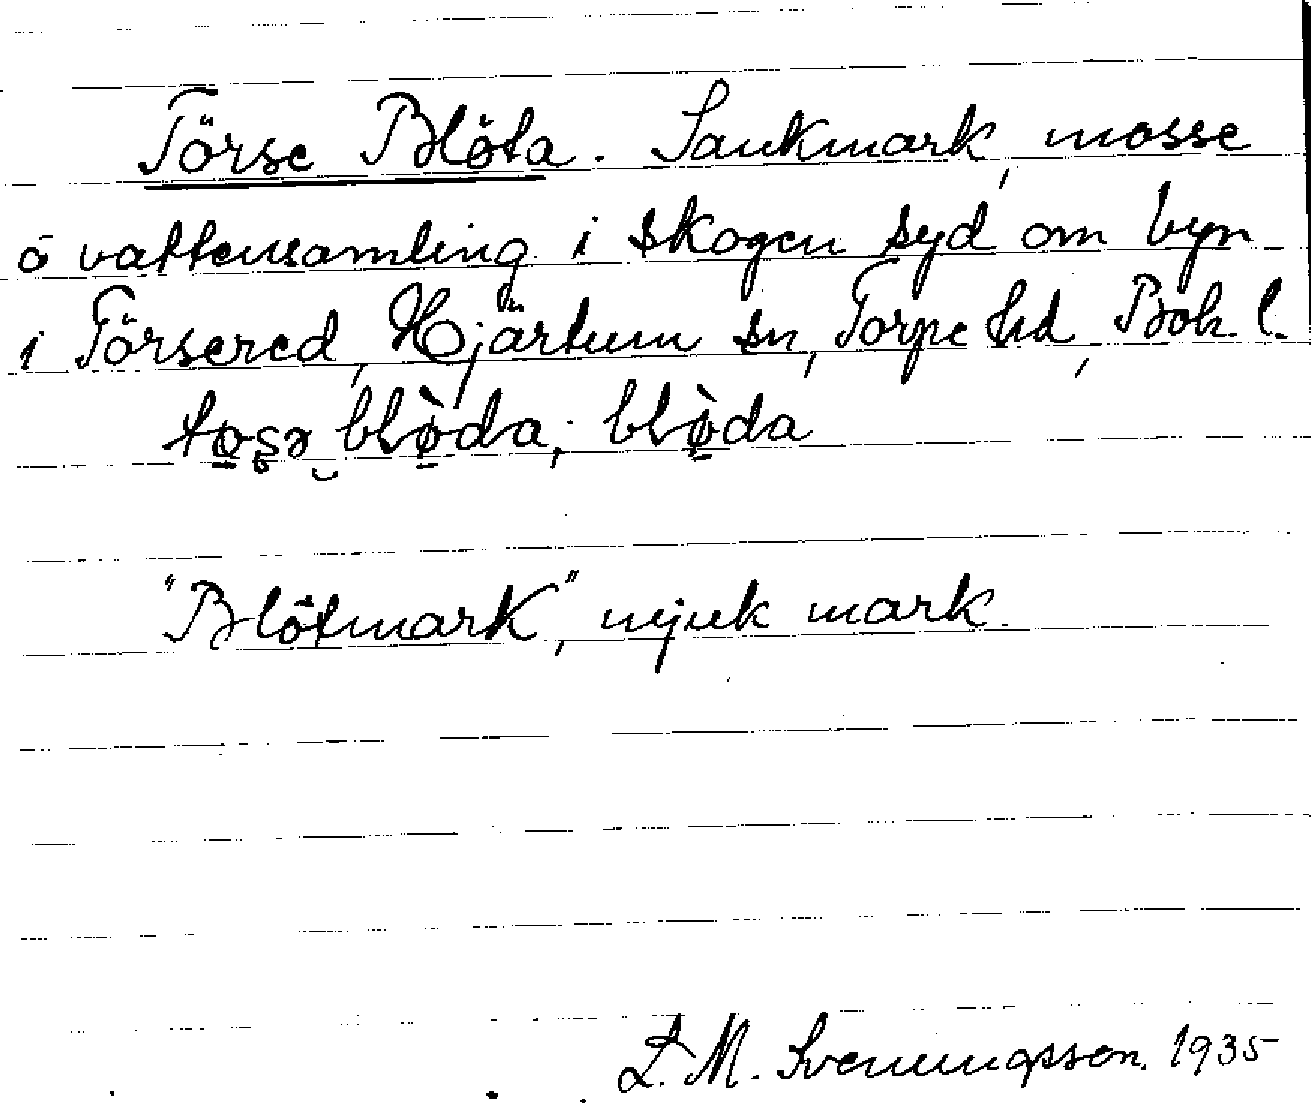 Törse Blöta. Sankmark, mosse
o vattensamling i skogen syd om byn
i Törsered, Hjärtum sn, Torpe hd, Boh. l.
to̱s̤ə‿blø̱̀da; blø̱̀da
"Blötmark", mjuk mark.
L. M. Svenungsson. 1935